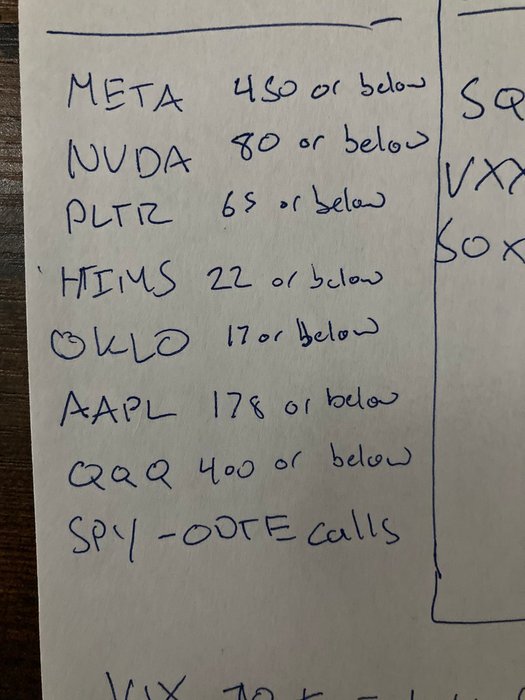 META 450 or below
NVDA 80 or below
PLTR 65 or below
HIMS 22 or below
OKLO 17 or below
AAPL 178 or below
QQQ 400 or below
SPY - ODTE calls
SQ
VXX
SOX
VIX